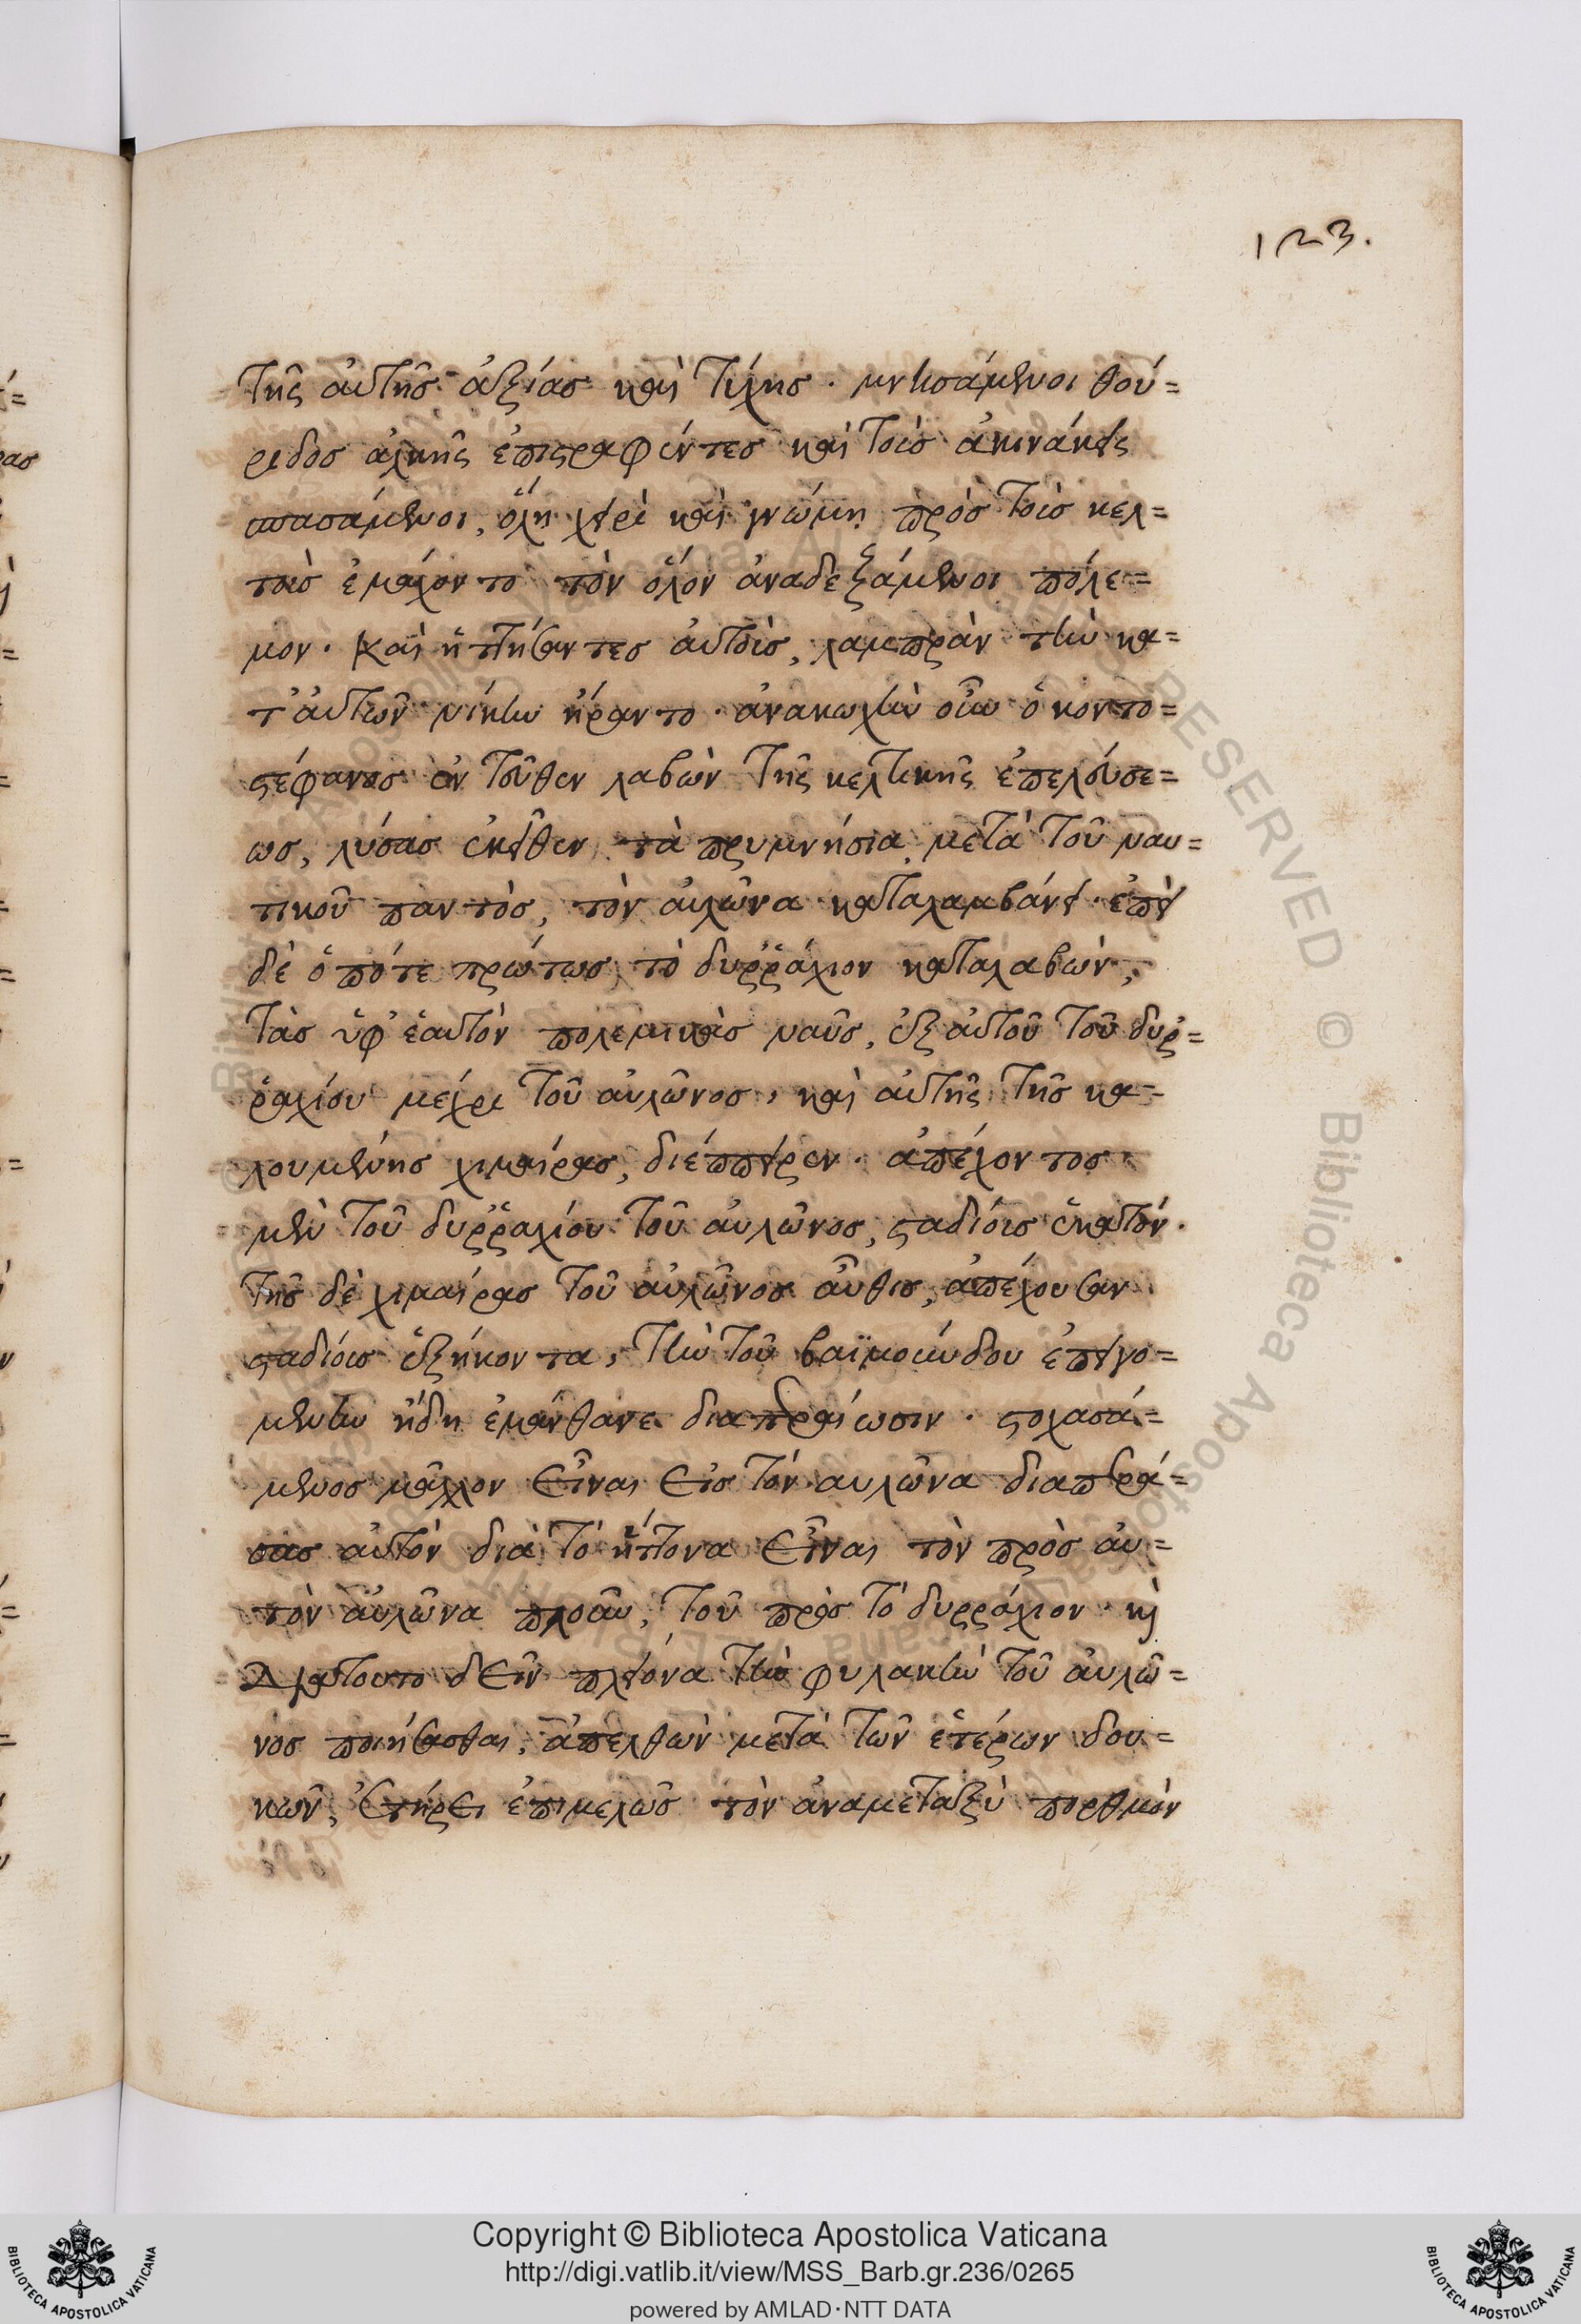 123.
τῆς αὐτῆς ἀξίας καὶ τύχης· μνησάμενοι θού=
ριδος ἀλκῆς ἐπιστραφέντες καὶ τοὺς ἀκινάκεις
σπασάμενοι, ὅλῃ χειρὶ καὶ γνώμῃ πρὸς τοὺς κελ=
τοὺς ἐμάχοντο τὸν ὅλον ἀναδεξάμενοι πόλε=
μον· Καὶ ἡττήσαντες αὐτοὺς, λαμπρὰν τὴν κα=
τ' αὐτῶν νίκην ἤραντο· ἀνακωχὴν οὖν ὁ κοντο=
στέφανος ἐν τοῦθεν λαβὼν τῆς κελτικῆς ἐπελεύσε=
ως, λύσας ἐκεῖθεν τὰ πρυμνήσια, μετὰ τοῦ ναυ=
τικοῦ παντὸς, τὸν αὐλῶνα καταλαμβάνει· ἐπεὶ
δὲ ὁπότε πρώτως τὸ δυῤῥάχιον καταλαβὼν,
τὰς ὑφ' ἑαυτὸν πολεμικὰς ναῦς, ἐξ αὐτοῦ τοῦ δυῤ=
ῥαχίου μέχρι τοῦ αὐλῶνος, καὶ αὐτῆς τῆς κα=
λουμένης χιμαίρας, διέσπειρεν· ἀπέχοντος
μὲν τοῦ δυῤῥαχίου τοῦ αὐλῶνος, σταδίοις ἑκατόν·
τῆς δὲ χιμαίρας τοῦ αὐλῶνος αὖθις, ἀπέχουσαν
σταδίοις ἑξήκοντα, τὴν τοῦ βαϊμούνδου ἐπειγο=
μένην ἤδη ἐμάνθανε διαπεραίωσιν· στοχασά=
μενος μᾶλλον εἶναι εἰς τὸν αυλῶνα διαπερά=
σας αὐτὸν διὰ τὸ ἥττονα εἶναι τὸν πρὸς αὐ=
τὸν αὐλῶνα πλοῦν, τοῦ πρὸς τὸ δυρράχιον· κὶ
Διατουτο δεῖν πλείονα τὴν φυλακὴν τοῦ αὐλῶ=
νος ποιήσασθαι, ἀπελθὼν μετὰ τῶν ἑτέρων δου=
κῶν, ἐτήρει ἐπιμελῶς τὸν ἀναμεταξὺ πορθμὸν
Copyright © Biblioteca Apostolica Vaticana
http://digi.vatlib.it/view/MSS_Barb.gr.236/0265
powered by AMLAD·NTT DATA